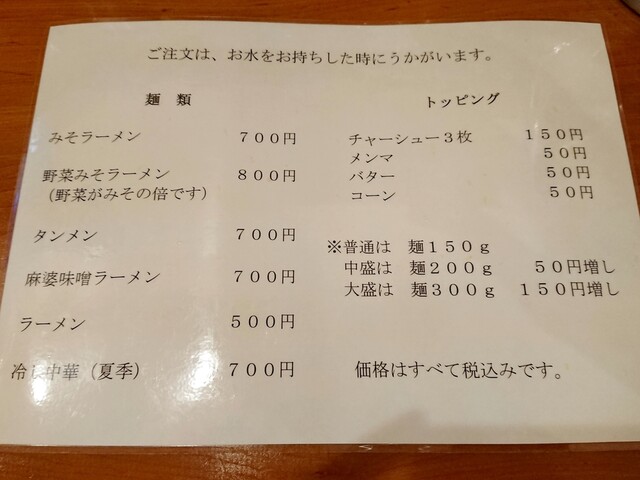 ご注文は、お水をお持ちした時にうかがいます。
麺 類
みそラーメン ７００円
野菜みそラーメン ８００円
（野菜がみその倍です）
タンメン ７００円
麻婆味噌ラーメン ７００円
ラーメン ５００円
冷し中華（夏季） ７００円
トッピング
チャーシュー３枚 １５０円
メンマ ５０円
バター ５０円
コーン ５０円
※普通は 麺１５０ｇ
中盛は 麺２００ｇ ５０円増し
大盛は 麺３００ｇ １５０円増し
価格はすべて税込みです。